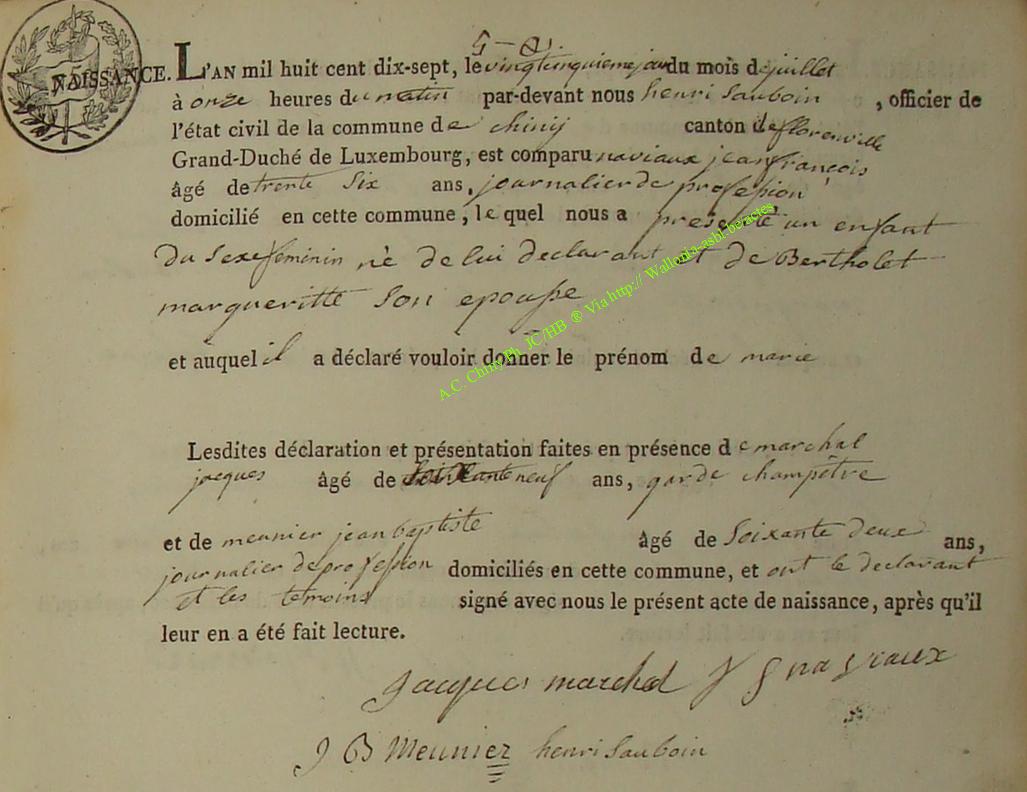 NAISSANCE. L'AN mil huit cent dix-sept, le vingtcinquieme jour du mois de juillet
à onze heures du matin par-devant nous henri Sauboin , officier de
l'état civil de la commune de chiny canton de florenville
Grand-Duché de Luxembourg, est comparu naviaux jean françois
âgé de trente Six ans, journalier de profession
domicilié en cette commune, le quel nous a presenté un enfant
du Sexe feminin né de lui declarant et de Bertholet
margueritte Son epouse
et auquel il a déclaré vouloir donner le prénom de marie
Lesdites déclaration et présentation faites en présence de marchal
jacques âgé de Soixante neuf ans, garde champêtre
et de meunier jean baptiste âgé de Soixante deux ans,
journalier de profession domiciliés en cette commune, et ont le declarant
et les témoins signé avec nous le présent acte de naissance, après qu'il
leur en a été fait lecture.
jacques marchal J naviaux
J B Meunier henri Sauboin
A.C. Chiny Ph JC/HB ® Via http:// Wallonia-asbl-be/actes